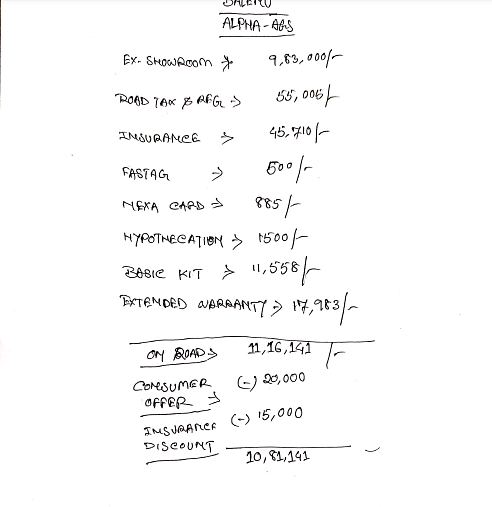 BALENO
ALPHA-AGS
EX-SHOWROOM → 9,83,000/-
ROAD TAX & REG → 55,005/-
INSURANCE → 45,710/-
FASTAG → 500/-
NEXA CARD → 885/-
HYPOTHECATION → 1500/-
BASIC KIT → 11,558/-
EXTENDED WARRANTY → 17,983/-
ON ROAD → 11,16,141/-
CONSUMER (-) 20,000
OFFER →
INSURANCE (-) 15,000
DISCOUNT
10,81,141